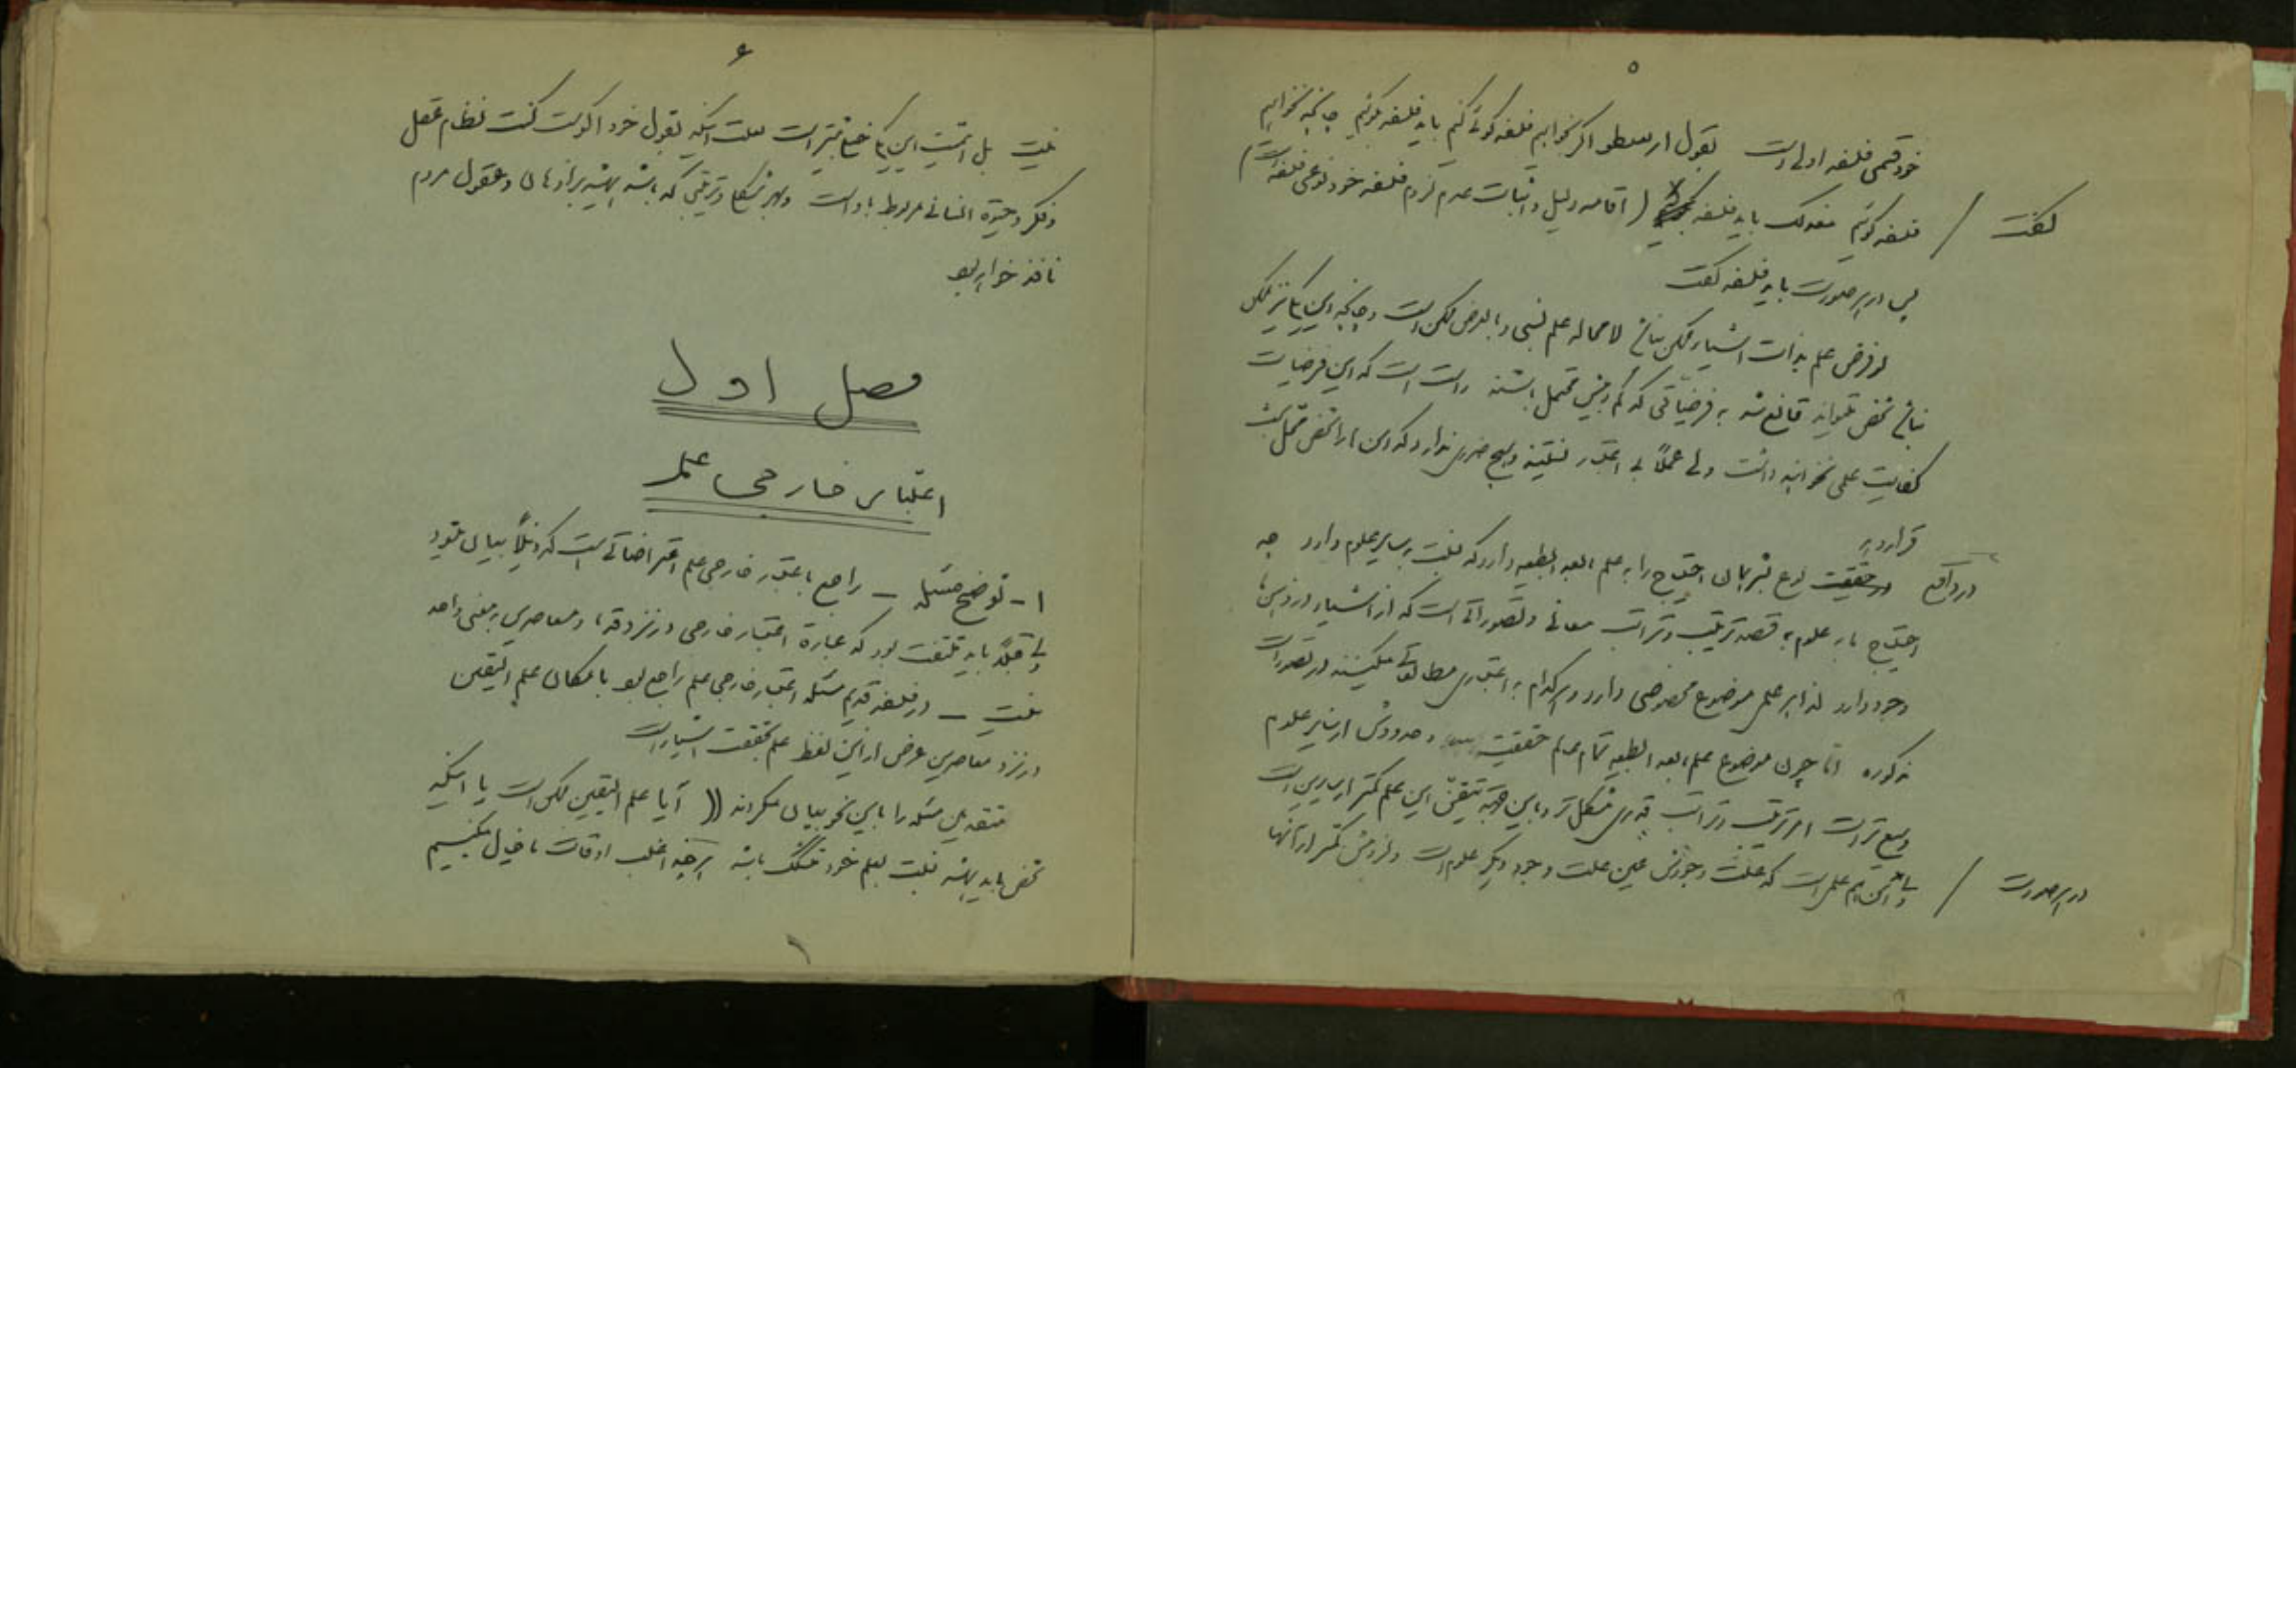 ۵
خود قسمی فلسفه اولی است بقول ارسطو اگر بخواهیم فلسفه گوئی کنیم باید فلسفه گوئیم چنانچه نخواهیم
فلسفه گوئیم معذلک باید فلسفه گفت (اقامه دلیل و اثبات عدم لزوم فلسفه خود نوعی فلسفه است)
پس در هر صورت باید فلسفه گفت
لو فرض علم بذات اشیاء ممکن نباشد لامحاله علم نسبی و بالعرض ممکن است و چنانچه این یکی نیز ممکن
نباشد شخص نمیتواند قانع شد به فرضیاتی که کم و بیش محتمل باشند راست است که این فرضیات
کفایت علمی نخواهند داشت ولی عملاً بی اعتبار نیستند و هیچ ضرری ندارد که این ها را شخص محتمل
قرار دهد
در واقع نوع بشر همان احتیاج را به علم مابعد الطبیعه دارد که نسبت بسایر علوم دارد چه
احتیاج ما به علوم به قصد ترتیب و تراتب معانی و تصوراتی است که از اشیاء در ذهن ما
وجود دارد لذا هر علمی موضوع مخصوصی دارد و هر کدام به اعتباری مطالعاتی میکنند در تصورات
مذکوره اما چون موضوع علم مابعد الطبیعه تمام عالم حقیقت و حدودش از سایر علوم
وسیع تر است امر ترتیب و تراتب قدری مشکل تر و باین وجه تیقن این علم کمتر از سایرین است
در هر صورت / با این هم علمی است که علت وجودش عین علت وجود دیگر علوم است و لزومش کمتر از آنها
۶
نیست بل اهمیت این یکی خیلی بیشتر است بعلت اینکه بقول خود اگوست کنت نظام عقل
و فکر و حیوة انسانی مربوط باو است و بهر شکل و ترتیبی که باشد همیشه بر اذهان و عقول مردم
نافذ خواهد بود
فصل اول
اعتبار خارجی علم
۱ - توضیح مسئله – راجع باعتبار خارجی علم اعتراضاتی است که ذیلاً بیان میشود
ولی قبلاً باید ملتفت بود که عبارة اعتبار خارجی در نزد قدما و معاصرین بمعنی واحد
نیست – در فلسفه قدیم مسئله اعتبار خارجی علم راجع بود بامکان علم الیقین
و در نزد معاصرین غرض از این لفظ علم بحقیقت اشیاء است
متقدمین مسئله را باین نحو بیان میکردند (( آیا علم الیقین ممکن است یا اینکه
شخص باید همیشه نسبت بعلم خود مشکک باشد هر چند اغلب اوقات ما خیال میکنیم